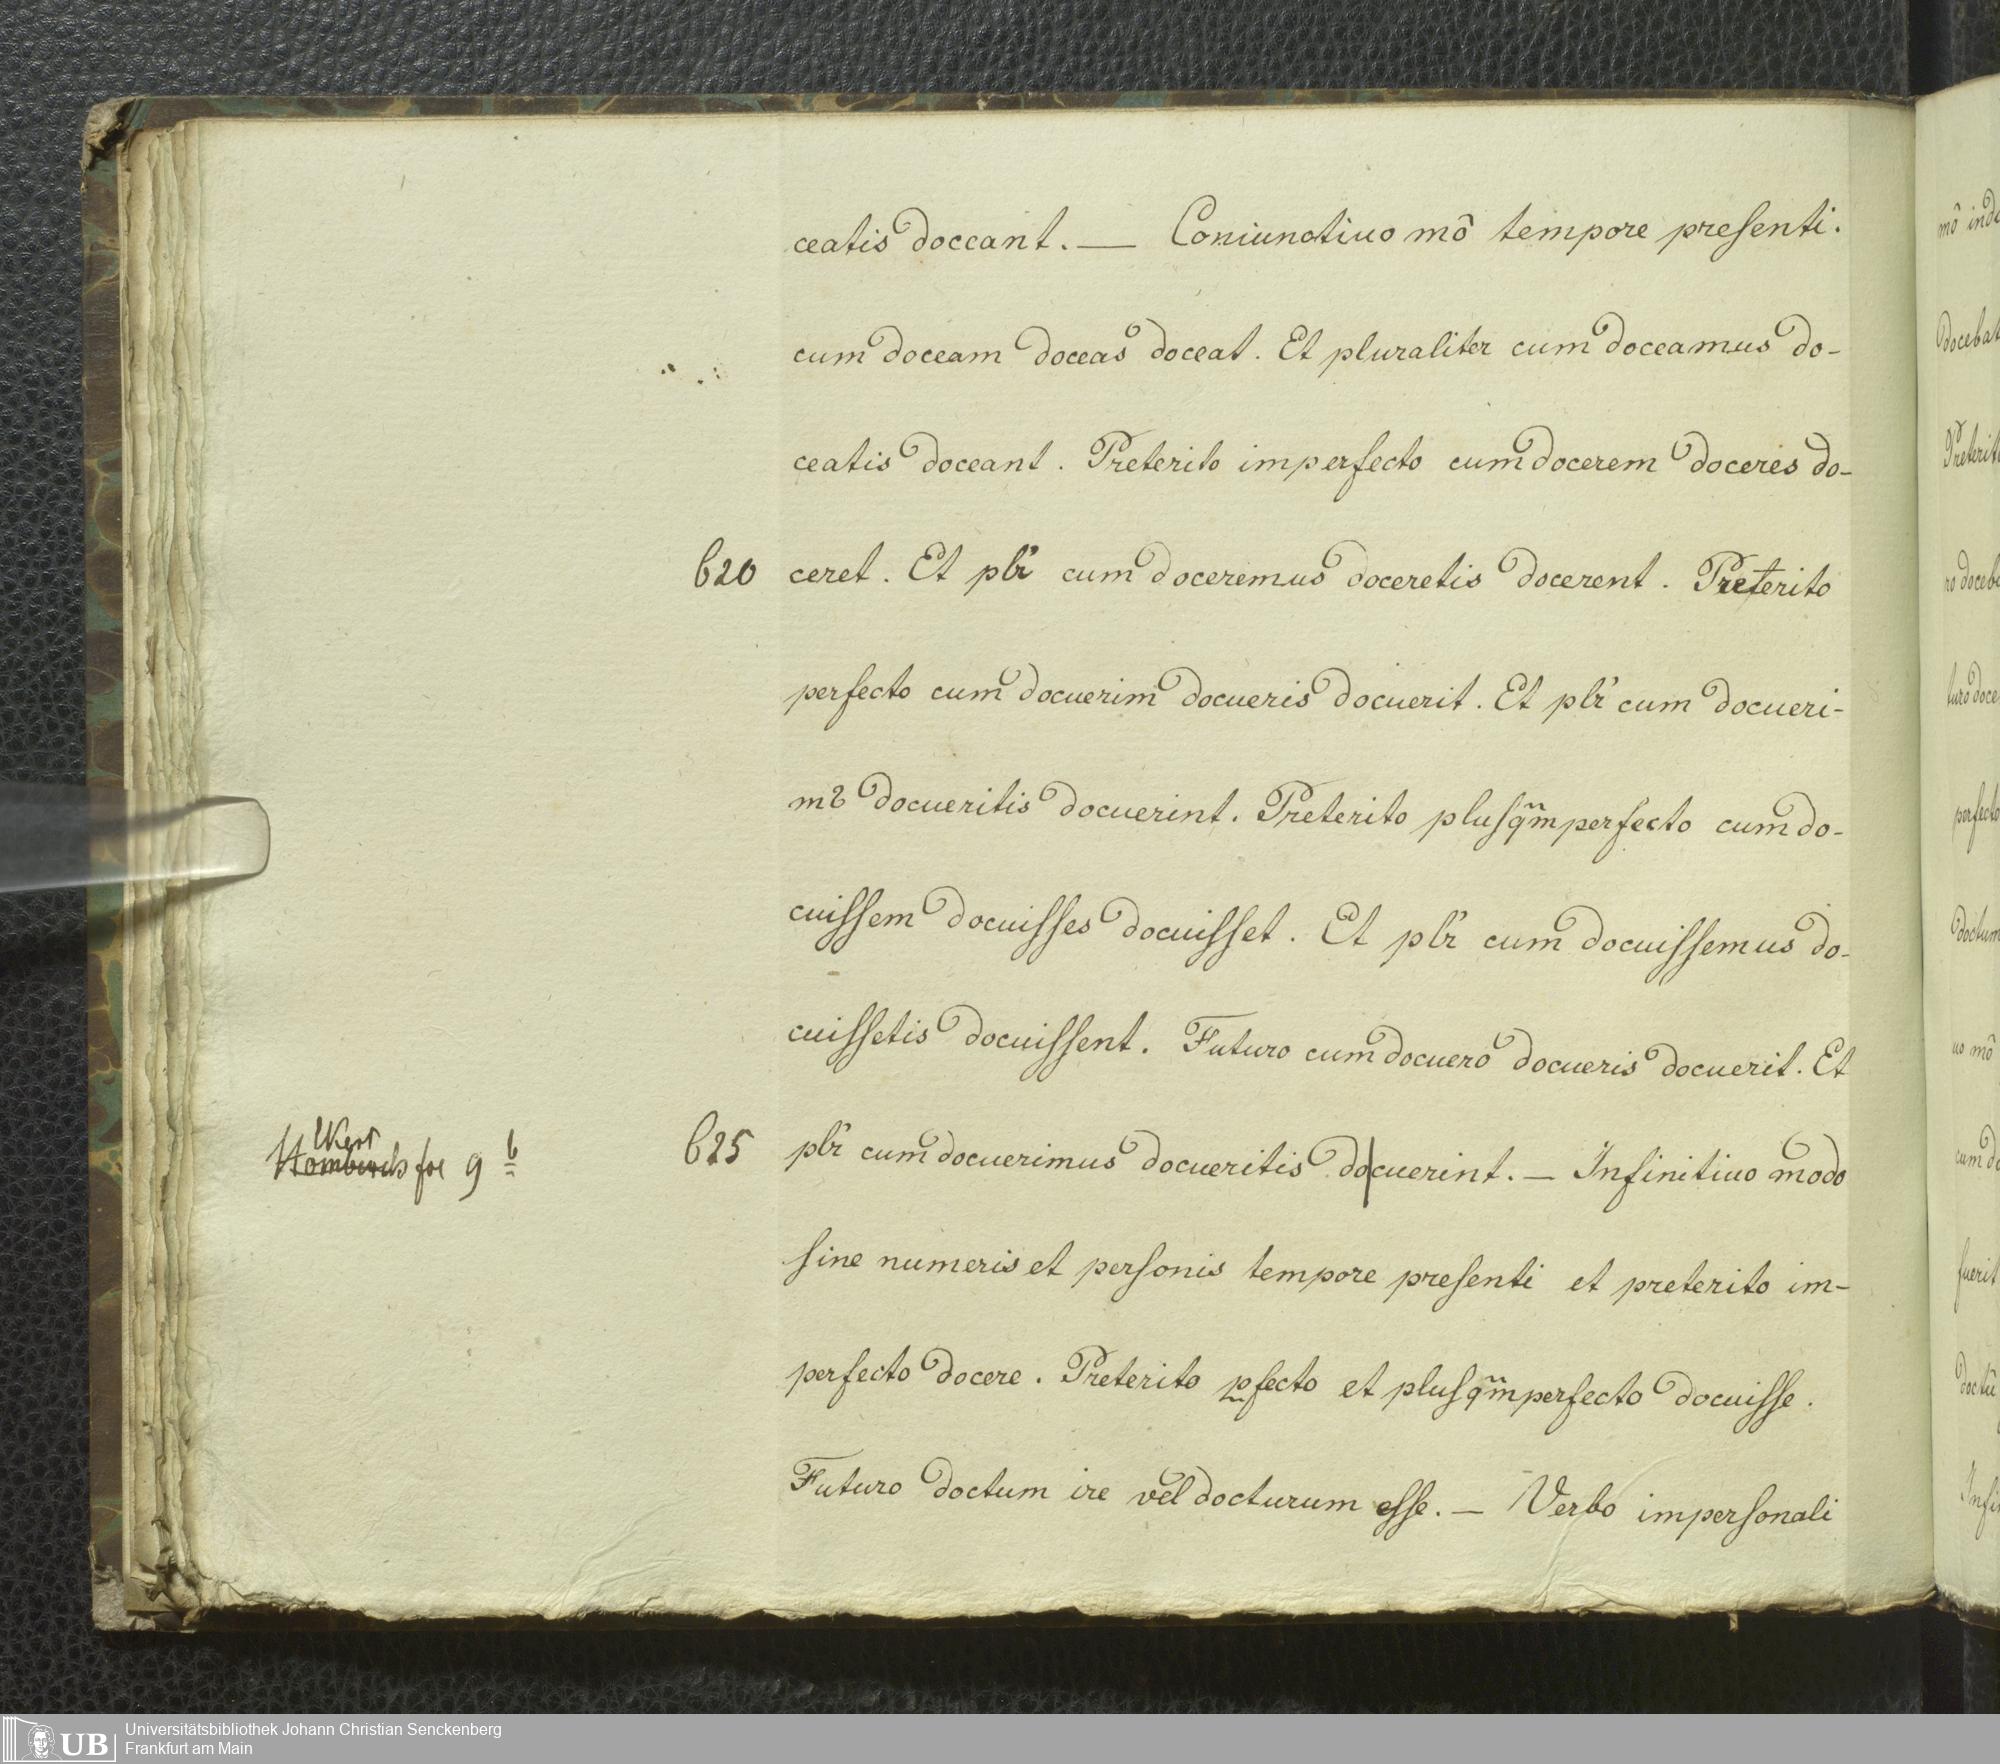 ceatis doceant. — Coniunctiuo mō tempore preſenti.
cum doceam doceas doceat. Et pluraliter cum doceamus do-
ceatis doceant. Preterito imperfecto cum docerem doceres do-
620 ceret. Et plr̄ cum doceremus doceretis docerent. Preterito
perfecto cum docuerim docueris docuerit. Et plr̄ cum docueri-
mꝰ docueritis docuerint. Preterito pluſq̃mperfecto cum do-
cuiſſem docuiſſes docuiſſet. Et plr̄ cum docuiſſemus do-
cuiſſetis docuiſſent. Futuro cum docuero docueris docuerit. Et
Ukert
fol 9 b
625 plr̄ cum docuerimus docueritis do|cuerint. — Infinitiuo modo
ſine numeris et perſonis tempore preſenti et preterito im-
perfecto docere. Preterito ꝑfecto et pluſq̃mperfecto docuiſſe.
Futuro doctum ire vel docturum eſſe. — Verbo imperſonali
mō
docebat
Preterito
perfecto
doctum
uo mō
cum
fuerit
doctū
UB Universitätsbibliothek Johann Christian Senckenberg
Frankfurt am Main